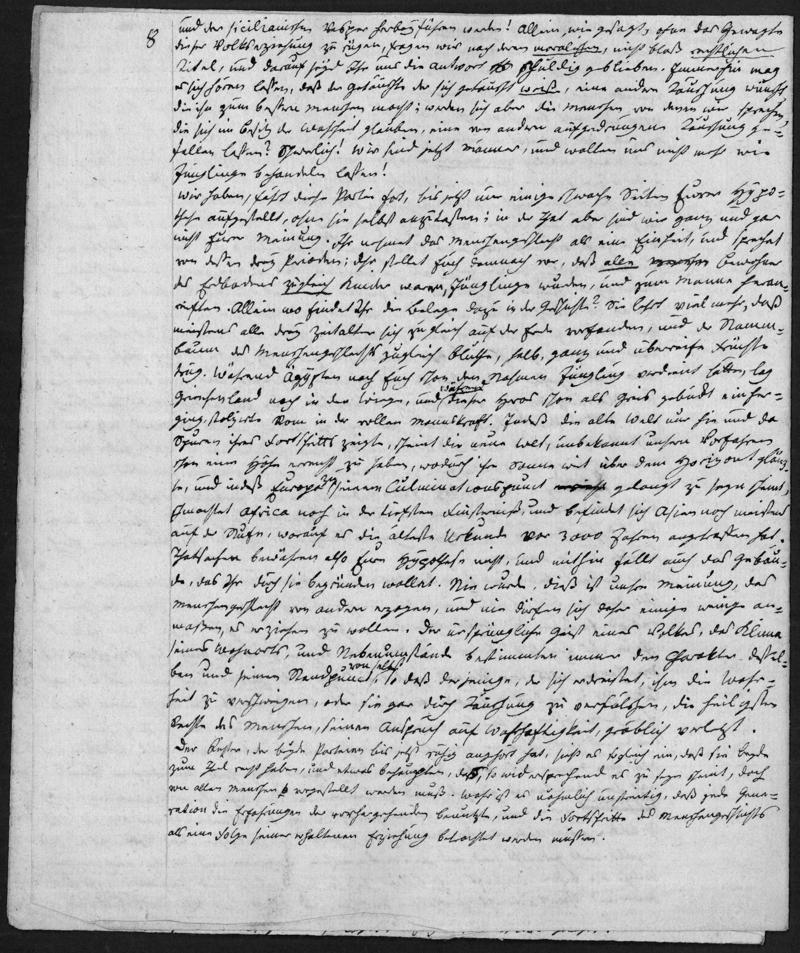 8
und der sicilianischen Vesper herbeyführen werden! Allein, wie gesagt, ohne das Gewagte
dieser Volkserziehung zu rügen, fragen wir nach deren moralischen, nicht bloß rechtlichen
Titel, und darauf seyd Ihr uns die Antwort schuldig geblieben. Immerhin mag
es sich hören lassen, daß der Getäuschte der sich getäuscht weiß, eine andere Täuschung wünscht
die ihn zum bessern Menschen macht; werden sich aber die Menschen von denen wir sprechen,
die sich im Besitz der Wahrheit glauben, eine von andern aufgedrungene Täuschung ge-
fallen lassen? Schwerlich! Wir sind jetzt Männer, und wollen uns nicht mehr wie
Jünglinge behandeln lassen!
Wir haben, fährt diese Partei fort, bis jetzt nur einige schwache Seiten Eurer Hypo-
these aufgestellt, ohne sie selbst anzutasten; in der That aber sind wir ganz und gar
nicht Eurer Meinung. Ihr nehmet das Menschengeschlecht als eine Einheit, und sprechet
von dessen drey Perioden; Ihr stellet Euch demnach vor, daß alle Bewohner
des Erdbodens zugleich Kinder waren, Jünglinge wurden, und zum Manne heran-
reiften. Allein wo findet Ihr die Belege dazu in der Geschichte? Sie lehrt vielmehr, daß
meistens alle drey Zeitalter sich zugleich auf der Erde vorfanden, und der Stamm-
baum des Menschengeschlechts zugleich Blüthe, halb, ganz und überreife Früchte
trug. Während Ägypten nach Euch schon den Nahmen Jüngling verdient hätte, lag
Griechenland noch in der Wiege, und während dieser Heros schon als Greis gebückt einher-
ging, stolzirte Rom in der vollen Mannskraft. Indeß die alte Welt nur hie und da
Spuren ihres Fortschritts zeigte, scheint die neue Welt, unbekannt unsern Vorfahren
schon eine Höhe erreicht zu haben, wodurch ihre Sonne weit über dem Horizont glänz-
te, und indeß Europa zu seinem Culminationspunct gelangt zu seyn scheint,
schmachtet Africa noch in der tiefsten Finsterniß, und befindet sich Asien noch meistens
auf der Stufe, worauf es die älteste Urkunde vor 3000 Jahren angetroffen hat.
Thatsachen bewähren also Eure Hypothese nicht, und mithin fällt auch das Gebäu-
de, das Ihr durch sie begründen wollet. Nie wurde, dieß ist unsre Meinung, das
Menschengeschlecht von andern erzogen, und nie dürfen sich daher einige wenige an-
maßen, es erziehen zu wollen. Der ursprüngliche Geist eines Volkes, das Klima
seines Wohnorts, und Nebenumstände bestimmten immer den Charakter dessel-
ben und seinen Standpunct von selbst, so daß derjenige, der sich erdreistet, ihm die Wahr-
heit zu verschweigen, oder sie gar durch Täuschung zu verfälschen, die heiligsten
Rechte des Menschen, seinen Anspruch auf Wahrhaftigkeit, gröblich verletzt.
Der Leser, der beyde Parteien bis jetzt ruhig angehört hat, sieht es sogleich ein, daß sie beyde
zum Theil recht haben, und etwas behaupten, das, so widersprechend es zu seyn scheint, doch
von allen Menschen vorgestellt werden muß. Wahr ist es nähmlich unstreitig, daß jede Gene-
ration die Erfahrungen der vorhergehenden benutzte, und die Fortschritte des Menschengeschlechts
als eine Folge seiner erhaltenen Erziehung betrachtet werden müssen.